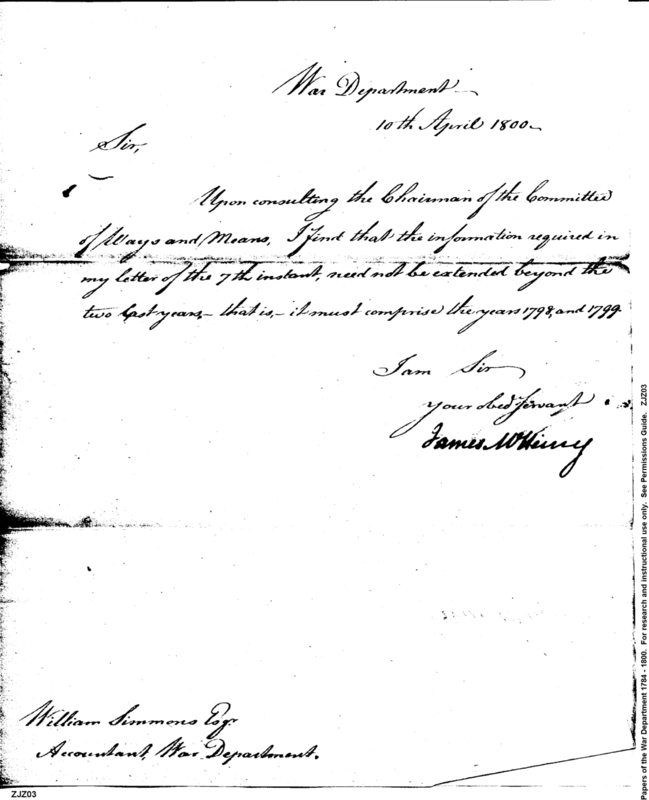 War Department
10th April 1800.
Sir,
Upon consulting the Chairman of the Committee
of Ways and Means, I find that the information required in
my letter of the 7th instant, need not be extended beyond the
two last years,- that is,- it must comprise the years 1798, and 1799.
I am Sir
your obed Servant
James McHenry
William Simmons Esqr
Accountant, War Department.
ZJZ03
Papers of the War Department 1784 - 1800. For research and instructional use only. See Permissions Guide. ZJZ03